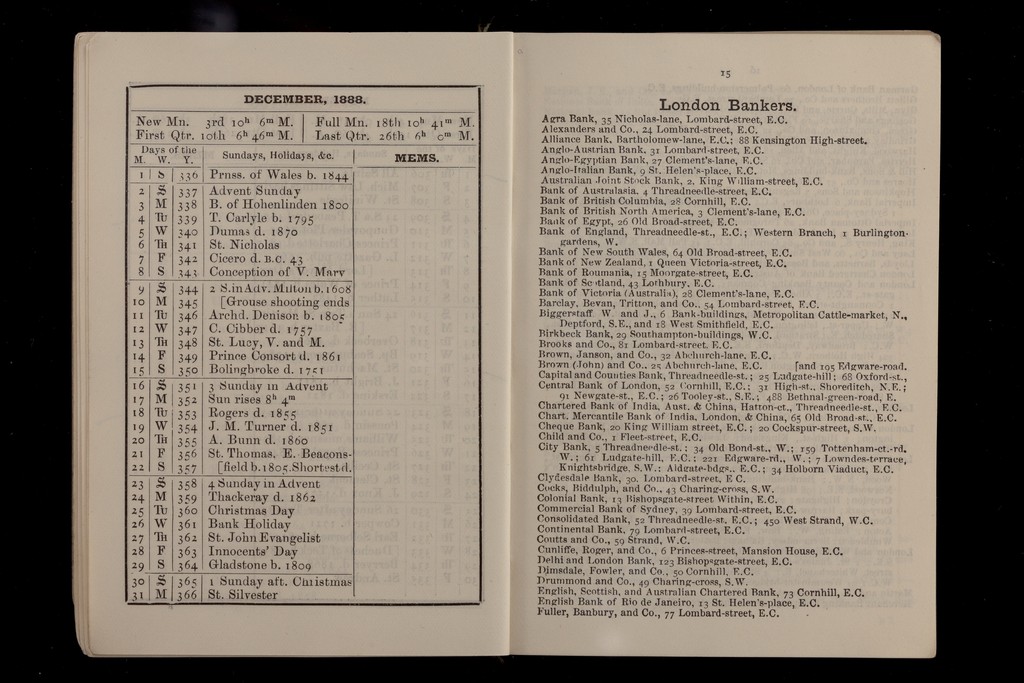 DECEMBER, 1888.
New Mn. 3rd 10h 6m M. Full Mn. 18th 10h 41m M.
First Qtr. 10th 6h 46m M. Last Qtr. 26th 6h 0m M.
Days of the
M. W. Y. Sundays, Holidays, &c. MEMS.
1 S 336 Prnss. of Wales b. 1844
2 S 337 Advent Sunday
3 M 338 B. of Hohenlinden 1800
4 Tu 339 T. Carlyle b. 1795
5 W 340 Dumas d. 1870
6 Th 341 St. Nicholas
7 F 342 Cicero d. B.C. 43
8 S 343 Conception of V. Mary
9 S 344 2 S.inAdv. Milton b. 1608
10 M 345 [Grouse shooting ends
11 Tu 346 Archd. Denison b. 1805
12 W 347 C. Cibber d. 1757
13 Th 348 St. Lucy, V. and M.
14 F 349 Prince Consort d. 1861
15 S 350 Bolingbroke d. 1751
16 S 351 3 Sunday in Advent
17 M 352 Sun rises 8h 4m
18 Tu 353 Rogers d. 1855
19 W 354 J. M. Turner d. 1851
20 Th 355 A. Bunn d. 1860
21 F 356 St. Thomas. E. Beacons-
22 S 357 [field b. 1805. Shortest d.
23 S 358 4 Sunday in Advent
24 M 359 Thackeray d. 1862
25 Tu 360 Christmas Day
26 W 361 Bank Holiday
27 Th 362 St. John Evangelist
28 F 363 Innocents' Day
29 S 364 Gladstone b. 1809
30 S 365 1 Sunday aft. Christmas
31 M 366 St. Silvester
15
London Bankers.
Agra Bank, 35 Nicholas-lane, Lombard-street, E.C.
Alexanders and Co., 24 Lombard-street, E.C.
Alliance Bank, Bartholomew-lane, E.C.; 88 Kensington High-street.
Anglo-Austrian Bank, 31 Lombard-street, E.C.
Anglo-Egyptian Bank, 27 Clement's-lane, E.C.
Anglo-Italian Bank, 9 St. Helen's-place, E.C.
Australian Joint Stock Bank, 2, King William-street, E.C.
Bank of Australasia, 4 Threadneedle-street, E.C.
Bank of British Columbia, 28 Cornhill, E.C.
Bank of British North America, 3 Clement's-lane, E.C.
Bank of Egypt, 26 Old Broad-street, E.C.
Bank of England, Threadneedle-st., E.C.; Western Branch, 1 Burlington-
gardens, W.
Bank of New South Wales, 64 Old Broad-street, E.C.
Bank of New Zealand, 1 Queen Victoria-street, E.C.
Bank of Roumania, 15 Moorgate-street, E.C.
Bank of Scotland, 43 Lothbury, E.C.
Bank of Victoria (Australia), 28 Clement's-lane, E.C.
Barclay, Bevan, Tritton, and Co., 54 Lombard-street, E.C.
Biggerstaff W. and J., 6 Bank-buildings, Metropolitan Cattle-market, N.,
Deptford, S.E., and 18 West Smithfield, E.C.
Birkbeck Bank, 29 Southampton-buildings, W.C.
Brooks and Co., 81 Lombard-street, E.C.
Brown, Janson, and Co., 32 Abchurch-lane, E.C.
Brown (John) and Co., 25 Abchurch-lane, E.C. [and 195 Edgware-road.
Capital and Counties Bank, Threadneedle-st.; 25 Ludgate-hill; 68 Oxford-st.,
Central Bank of London, 52 Cornhill, E.C.; 31 High-st., Shoreditch, N.E.;
91 Newgate-st., E.C.; 26 Tooley-st., S.E.; 488 Bethnal-green-road, E.
Chartered Bank of India, Aust. & China, Hatton-ct., Threadneedle-st., E.C.
Chart. Mercantile Bank of India, London, & China, 65 Old Broad-st., E.C.
Cheque Bank, 20 King William street, E.C.; 20 Cockspur-street, S.W.
Child and Co., 1 Fleet-street, E.C.
City Bank, 5 Threadneedle-st.; 34 Old Bond-st., W.; 159 Tottenham-ct.-rd.
W.; 61 Ludgate-hill, E.C.; 221 Edgware-rd., W.; 7 Lowndes-terrace,
Knightsbridge, S.W.; Aldgate-bdgs., E.C.; 34 Holborn Viaduct, E.C.
Clydesdale Bank, 30, Lombard-street, E.C.
Cocks, Biddulph, and Co., 43 Charing-cross, S.W.
Colonial Bank, 13 Bishopsgate-street Within, E.C.
Commercial Bank of Sydney, 39 Lombard-street, E.C.
Consolidated Bank, 52 Threadneedle-st. E.C.; 450 West Strand, W.C.
Continental Bank, 79 Lombard-street, E.C.
Coutts and Co., 59 Strand, W.C.
Cunliffe, Roger, and Co., 6 Princes-street, Mansion House, E.C.
Delhi and London Bank, 123 Bishopsgate-street, E.C.
Dimsdale, Fowler, and Co., 50 Cornhill, E.C.
Drummond and Co., 49 Charing-cross, S.W.
English, Scottish, and Australian Chartered Bank, 73 Cornhill, E.C.
English Bank of Rio de Janeiro, 13 St. Helen's-place, E.C.
Fuller, Banbury, and Co., 77 Lombard-street, E.C.